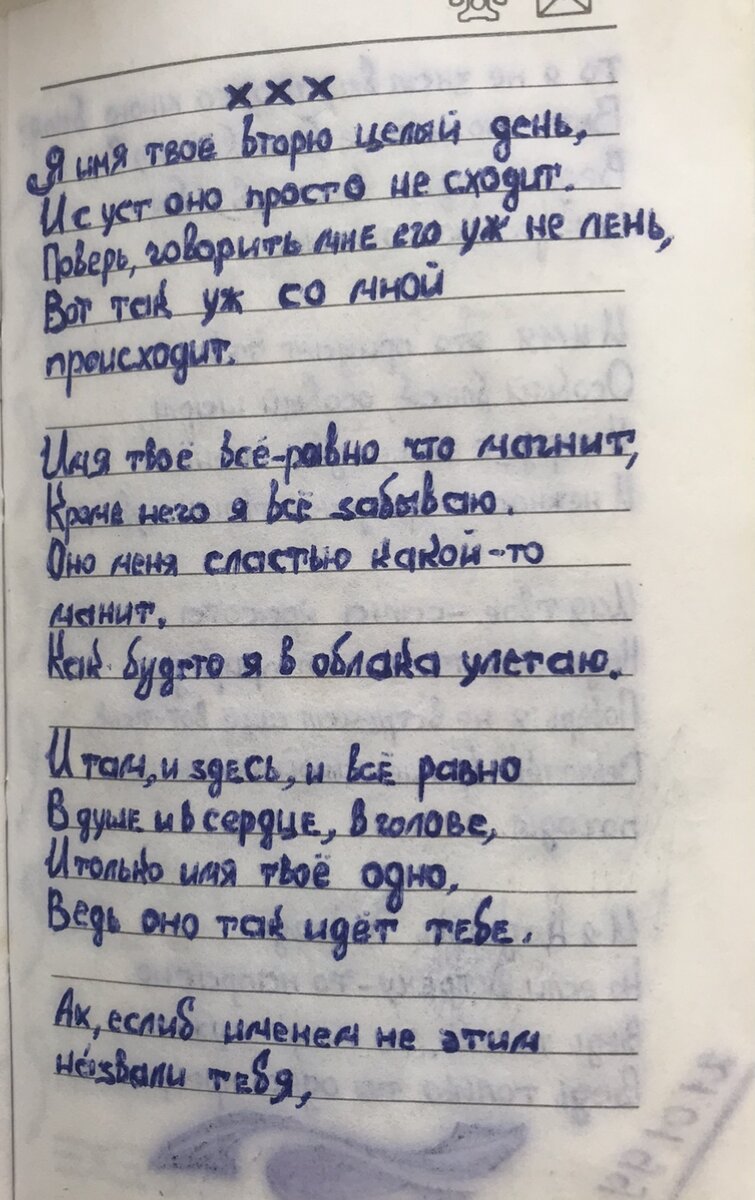 ххх
Я имя твоё вторю целый день,
И с уст оно просто не сходит.
Поверь, говорить мне его уж не лень,
Вот так уж со мной
происходит.
Имя твоё всё-равно что магнит,
Кроме него я всё забываю.
Оно меня сластью какой-то
манит,
Как будто я в облака улетаю.
И там, и здесь, и всё равно
В душе и в сердце, в голове,
И только имя твоё одно,
Ведь оно так идёт тебе.
Ах, еслиб именем не этим
назвали тебя,